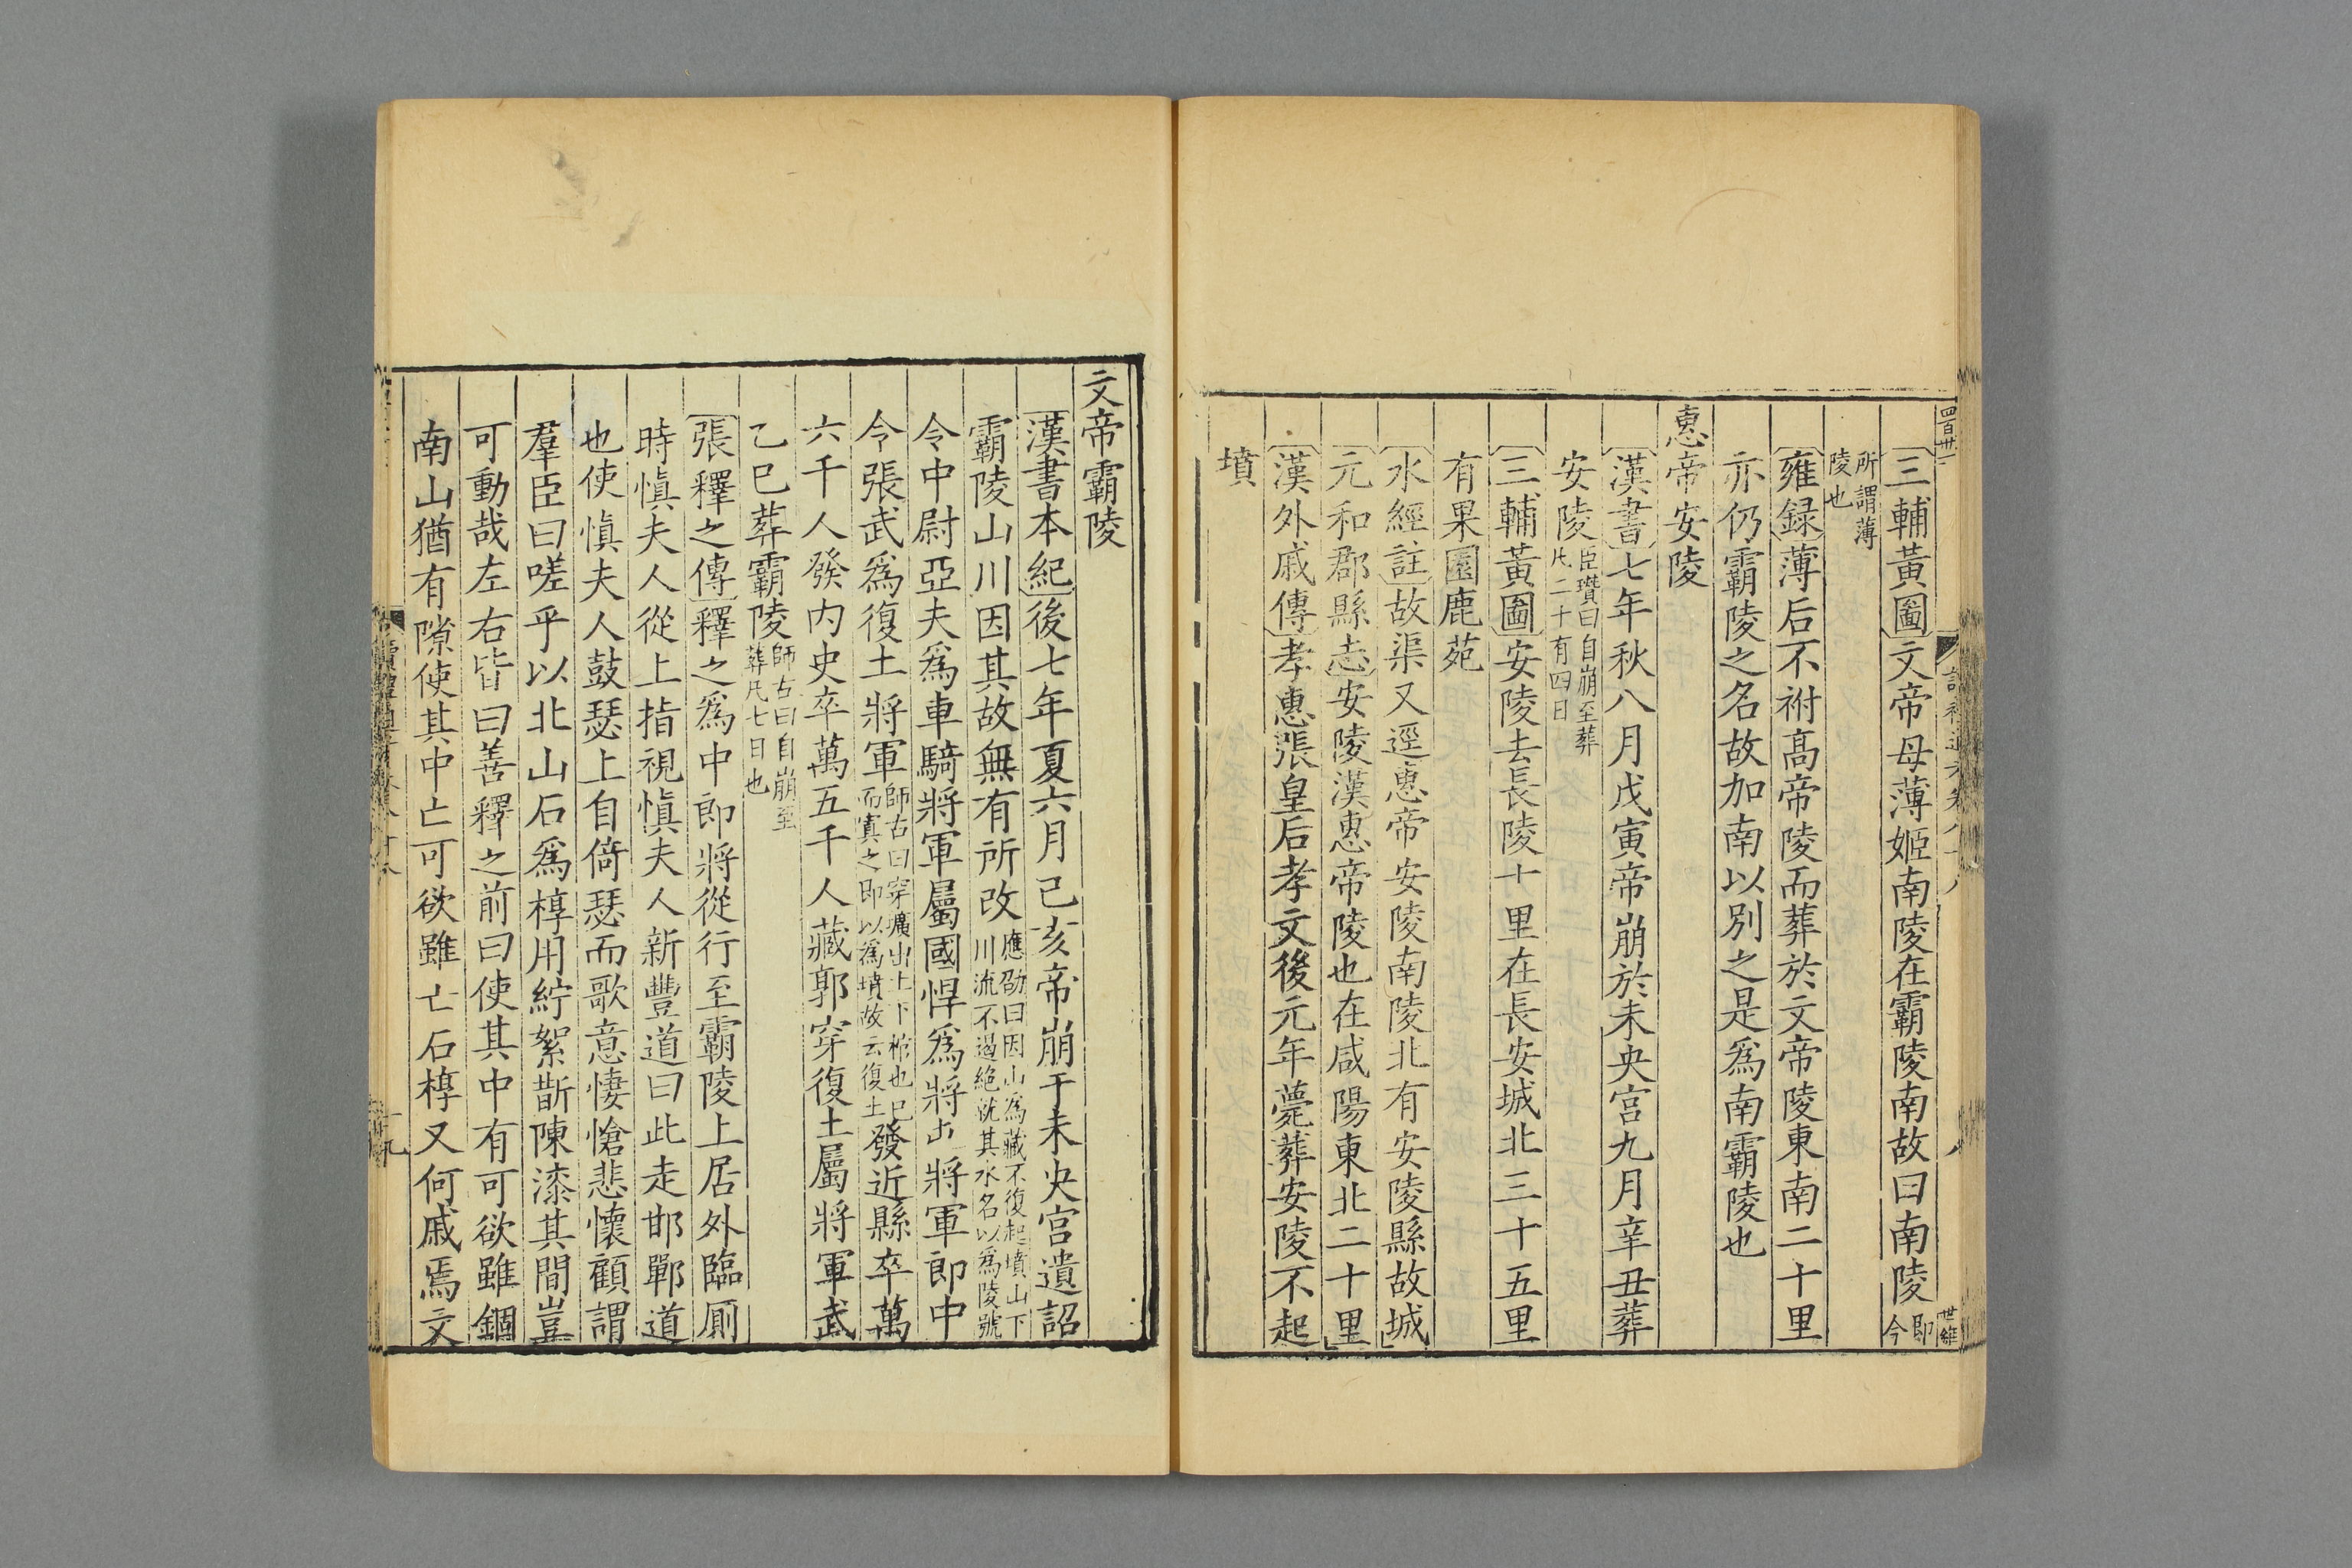 三輔黃圖文帝母薄姬南陵在霸陵南故曰南陵即今
所謂薄陵也
雍録薄后不祔高帝陵而葬於文帝陵東南二十里
亦仍霸陵之名故加南以別之是爲南霸陵也
惠帝安陵
漢書七年秋八月戊寅帝崩於未央宫九月辛丑葬
安陵臣瓚曰自崩至葬凡二十有四日
三輔黃圖安陵去長陵十里在長安城北三十五里
有果園鹿苑
水經註故渠又逕惠帝安陵南陵北有安陵縣故城
元和郡縣志安陵漢惠帝陵也在咸陽東北二十里
漢外戚傳孝惠張皇后孝文後元年薨葬安陵不起
墳
文帝霸陵
漢書本紀後七年夏六月己亥帝崩于未央宫遺詔
霸陵山川因其故無有所改應劭曰因山爲藏不復起墳山下川流不遏絶就其水名以爲陵號
令中尉亞夫爲車騎將軍屬國悍爲將屯將軍即中
令張武爲復土將軍師古曰穿壙出土下棺也已而寘之即以爲墳故云復土發近縣卒萬
六千人發内史卒萬五千人藏郭穿復土屬將軍武
乙巳葬霸陵師古曰自崩至葬凡七日也
張釋之傳釋之爲中郎將從行至霸陵上居外臨厠
時愼夫人從上指視愼夫人新豐道曰此走邯鄲道
也使愼夫人鼓瑟上自倚瑟而歌意悽愴悲懷顧謂
羣臣曰嗟乎以北山石爲椁用紵絮斮陳漆其間豈
可動哉左右皆曰善釋之前曰使其中有可欲雖錮
南山猶有隙使其中亡可欲雖亡石椁又何戚焉文